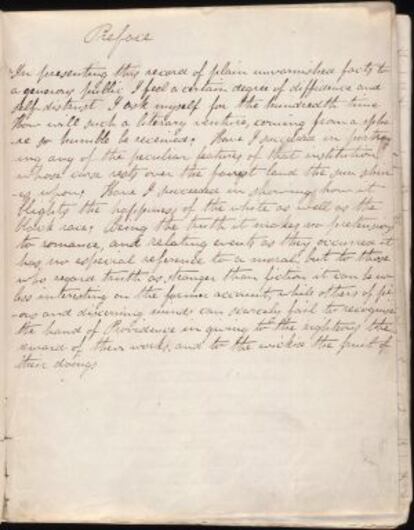 Preface
In presenting this record of plain unvarnished facts to
a generous public I feel a certain degree of diffidence and
self-distrust. I ask myself for the hundredth time
How will such a literary venture, coming from a sphe-
re so humble be received? Have I succeeded in portray-
ing any of the peculiar features of that institution
whose curse rests over the fairest land the sun shin-
es upon? Have I succeeded in showing how it
blights the happiness of the white as well as the
black race? Being the truth it makes no pretensions
to romance, and relating events as they occurred it
has no especial reference to a moral, but to those
who regard truth as stranger than fiction it can be no
less interesting on the former account, while others of pi-
ous and discerning minds can scarcely fail to recognise
the hand of Providence in giving to the righteous the
reward of their works, and to the wicked the fruit of
their doings